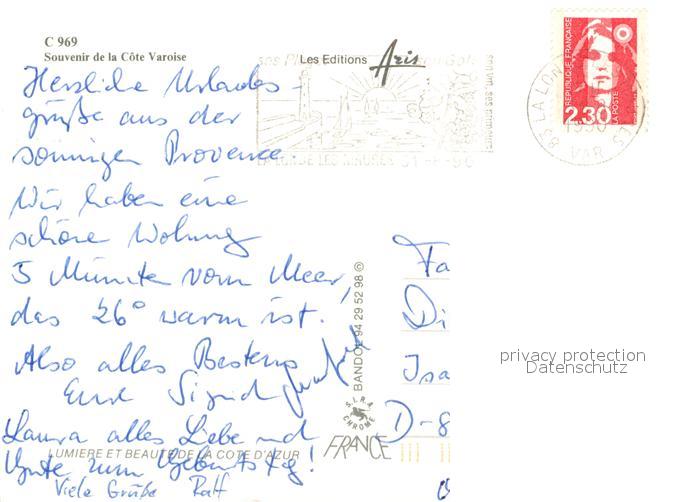 C 969
Souvenir de la Côte Varoise
Les Editions Aris
LA LONDE LES MAURES 31-8-90
83 LA LON
1990
VAR
REPUBLIQUE FRANÇAISE
LA POSTE
2.30
Herzliche Urlaubs-
grüße aus der
sonnigen Provence.
Wir haben eine
schöne Wohnung
5 Minuten vom Meer,
das 26° warm ist.
Also alles Bestens
Eure Sigrid
Laura alles Liebe und
Gute zum Geburtstag!
Viele Grüße Ralf
Fa
Di
Isa
D-8
BANDOL 94 29 52 98 ©
S.I.R.A.
CHROME
FRANCE
LUMIERE ET BEAUTE DE LA COTE D'AZUR
privacy protection
Datenschutz